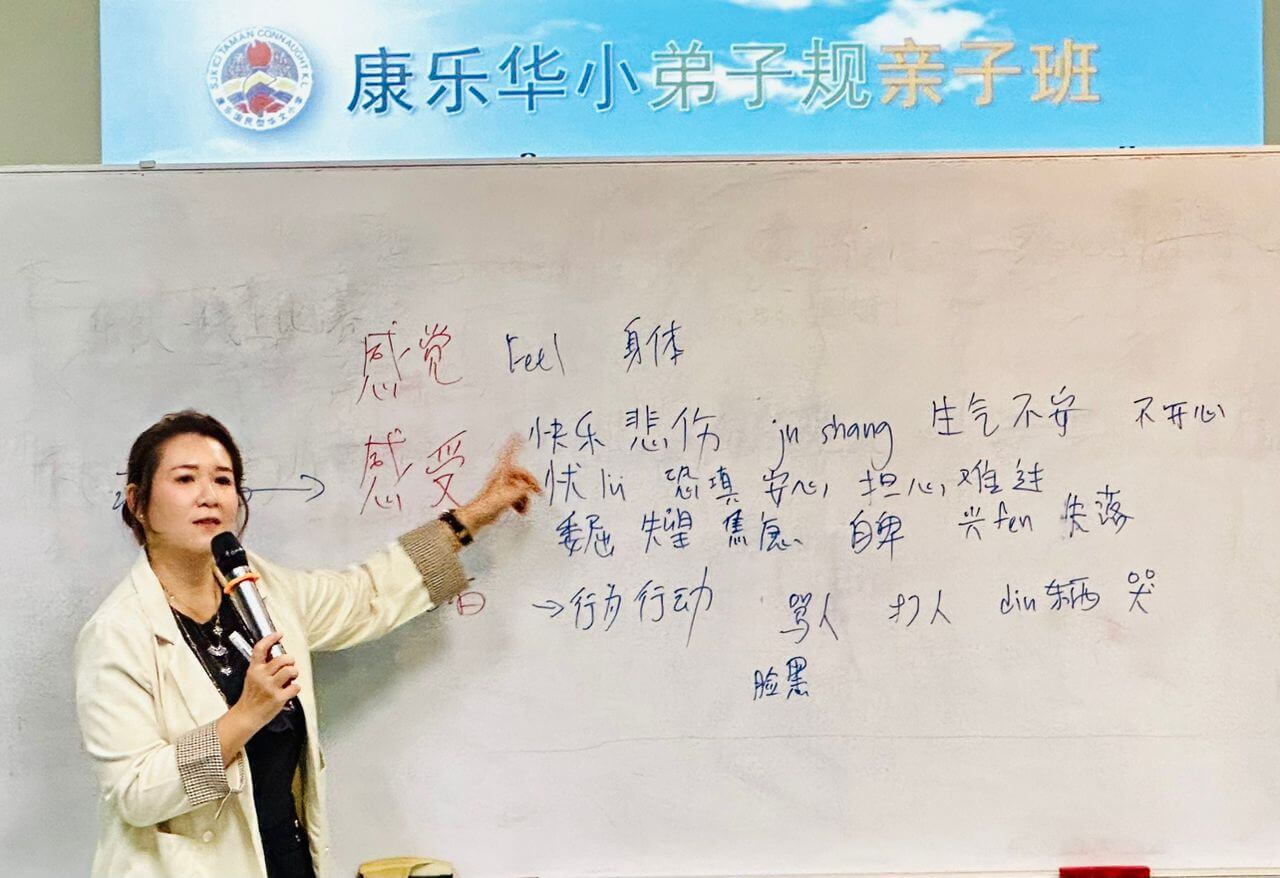 S.J.K (C) TAMAN CONNAUGHT K.L.
康乐华小弟子规亲子班
感觉 Feel 身体
感受 快乐 悲伤 ju shang 生气 不安 不开心
忧lü 恐填 安心 担心 难过
委屈 失望 焦急 自卑 兴fen 失落
→行为行动 骂人 打人 diu东西 哭
脸黑